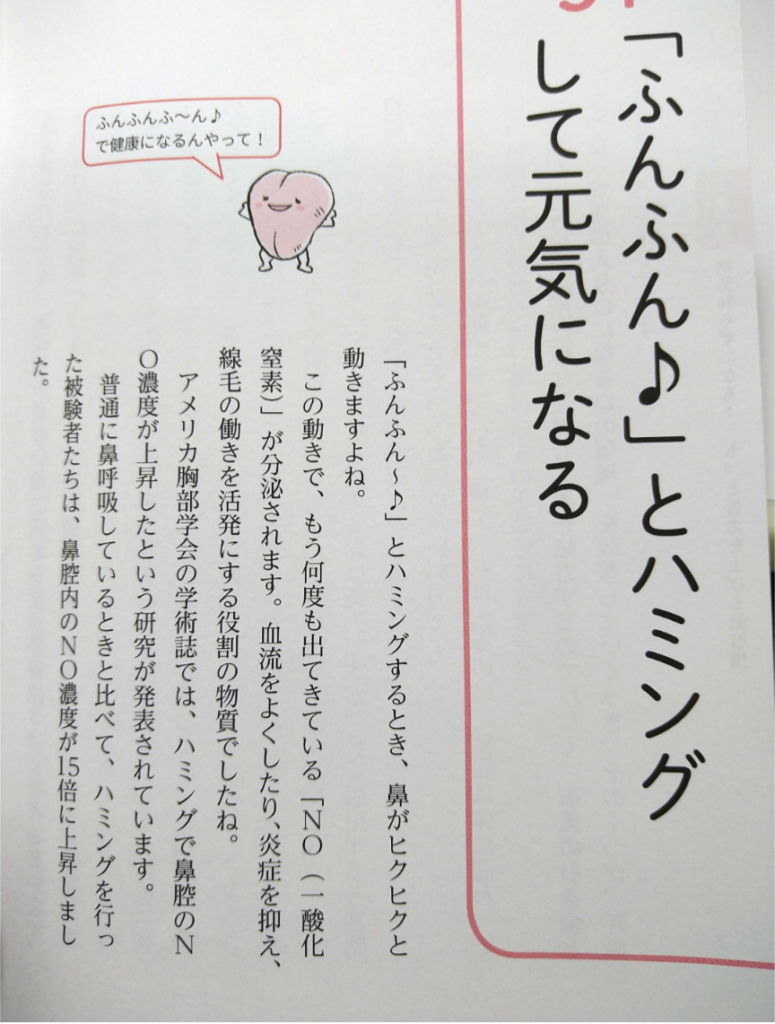 「ふんふん♪」とハミング
して元気になる
ふんふんふ〜ん♪
で健康になるんやって！
「ふんふん〜♪」とハミングするとき、鼻がヒクヒクと
動きますよね。
この動きで、もう何度も出てきている「NO（一酸化
窒素）」が分泌されます。血流をよくしたり、炎症を抑え、
線毛の働きを活発にする役割の物質でしたね。
アメリカ胸部学会の学術誌では、ハミングで鼻腔のN
O濃度が上昇したという研究が発表されています。
普通に鼻呼吸しているときと比べて、ハミングを行っ
た被験者たちは、鼻腔内のNO濃度が15倍に上昇しまし
た。